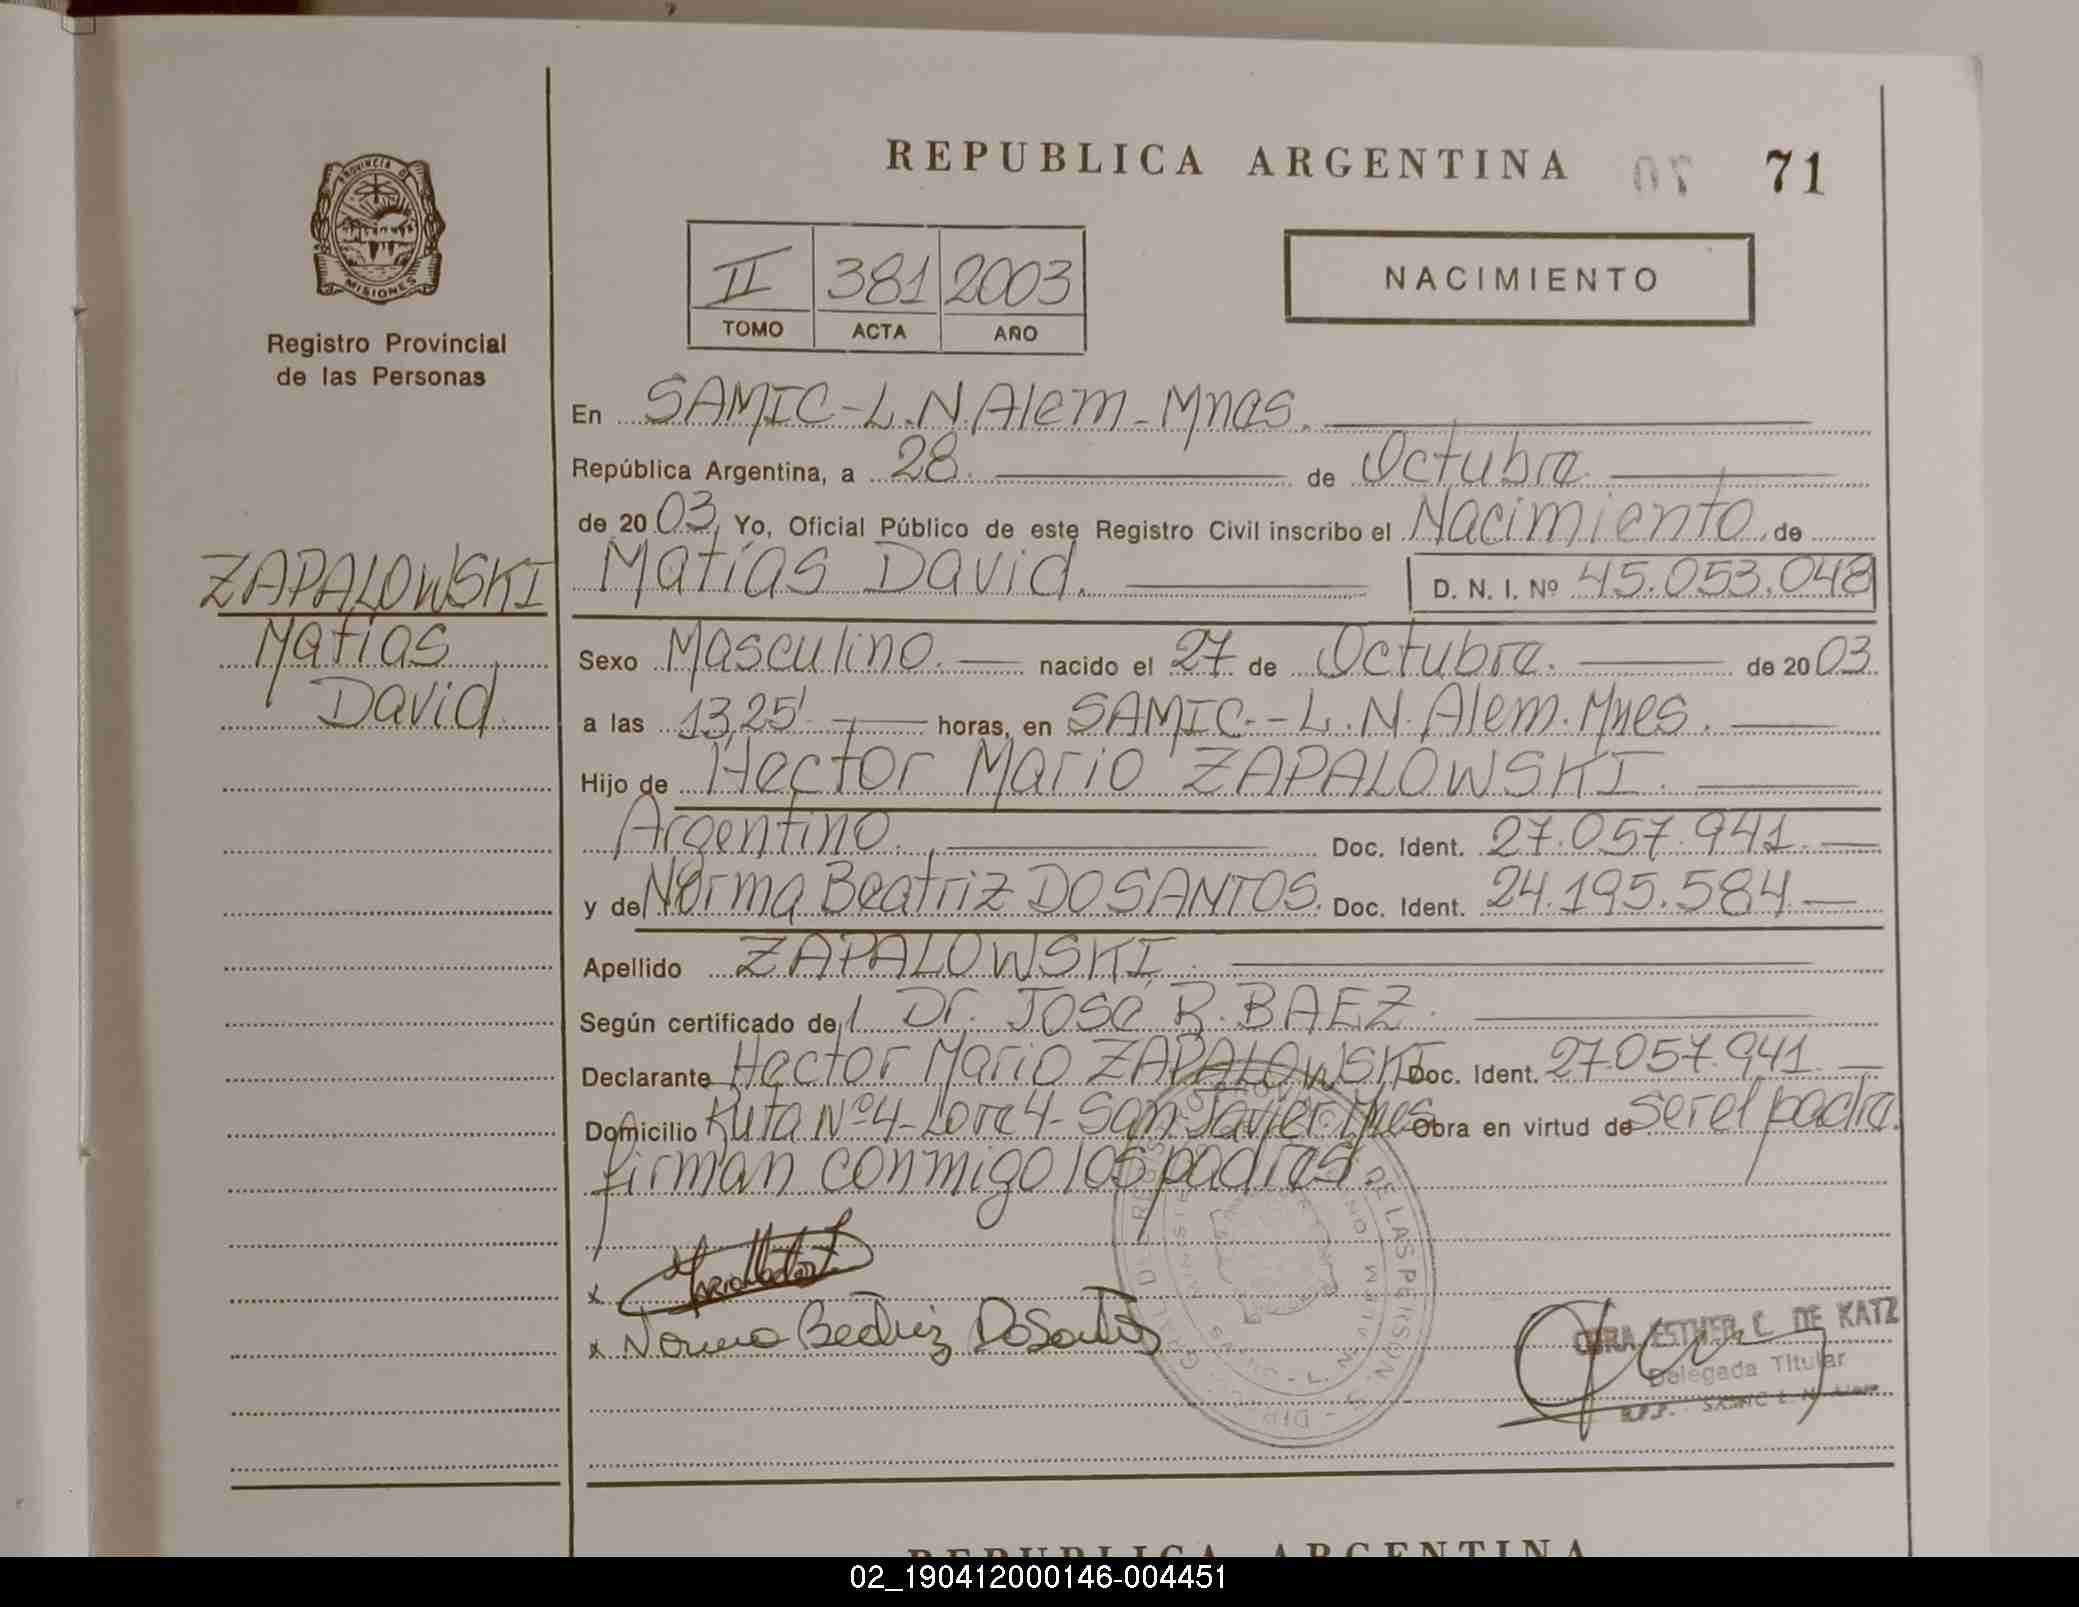 REPUBLICA ARGENTINA 70 71
PROVINCIA DE MISIONES
Registro Provincial
de las Personas
II 381 2003
TOMO ACTA AÑO
NACIMIENTO
En SAMIC-L.N.Alem-Mnes.
República Argentina, a 28. de Octubre.
de 2003, Yo, Oficial Público de este Registro Civil inscribo el Nacimiento de
Matías David. D. N. I. Nº 45.053.048
ZAPALOWSKI
Matías
David.
Sexo Masculino. nacido el 27 de Octubre. de 2003.
a las 13,25' horas, en SAMIC.-L.N.Alem.Mnes.
Hijo de Hector Mario ZAPALOWSKI.
Argentino. Doc. Ident. 27.057.941.
y de Norma Beatriz DOSANTOS. Doc. Ident. 24.195.584.
Apellido ZAPALOWSKI.
Según certificado del Dr. José R. BAEZ.
Declarante Hector Mario ZAPALOWSKI Doc. Ident. 27.057.941.
Domicilio Ruta Nº4-Lote 4-San Javier Mnes Obra en virtud de ser el padre.
firman conmigo los padres.
x
x Norma Beatriz DoSantos
DE LAS PERSONAS
OBRA ESTHER C. DE KATZ
Delegada Titular
R.P.P. SAMIC L. N. Alem
REPUBLICA ARGENTINA
02_190412000146-004451